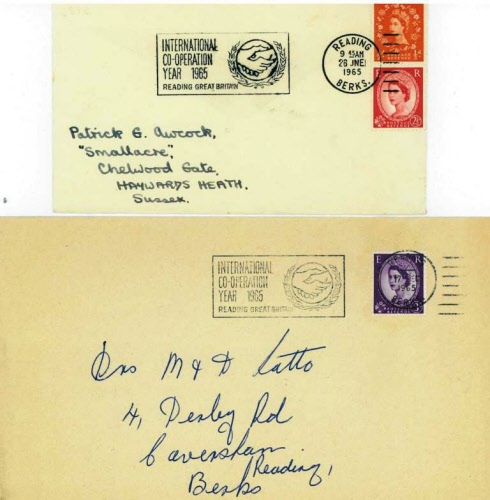 INTERNATIONAL
CO-OPERATION
YEAR 1965
READING GREAT BRITAIN
READING
9 15AM
28 JNE
1965
BERKS.
E R
Patrick G. Awcock,
"Smallacre",
Chelwood Gate,
HAYWARDS HEATH,
Sussex.
INTERNATIONAL
CO-OPERATION
YEAR 1965
READING GREAT BRITAIN
E R
1965
Drs M & D Catto
4, Derby Rd
Caversham
Reading,
Berks